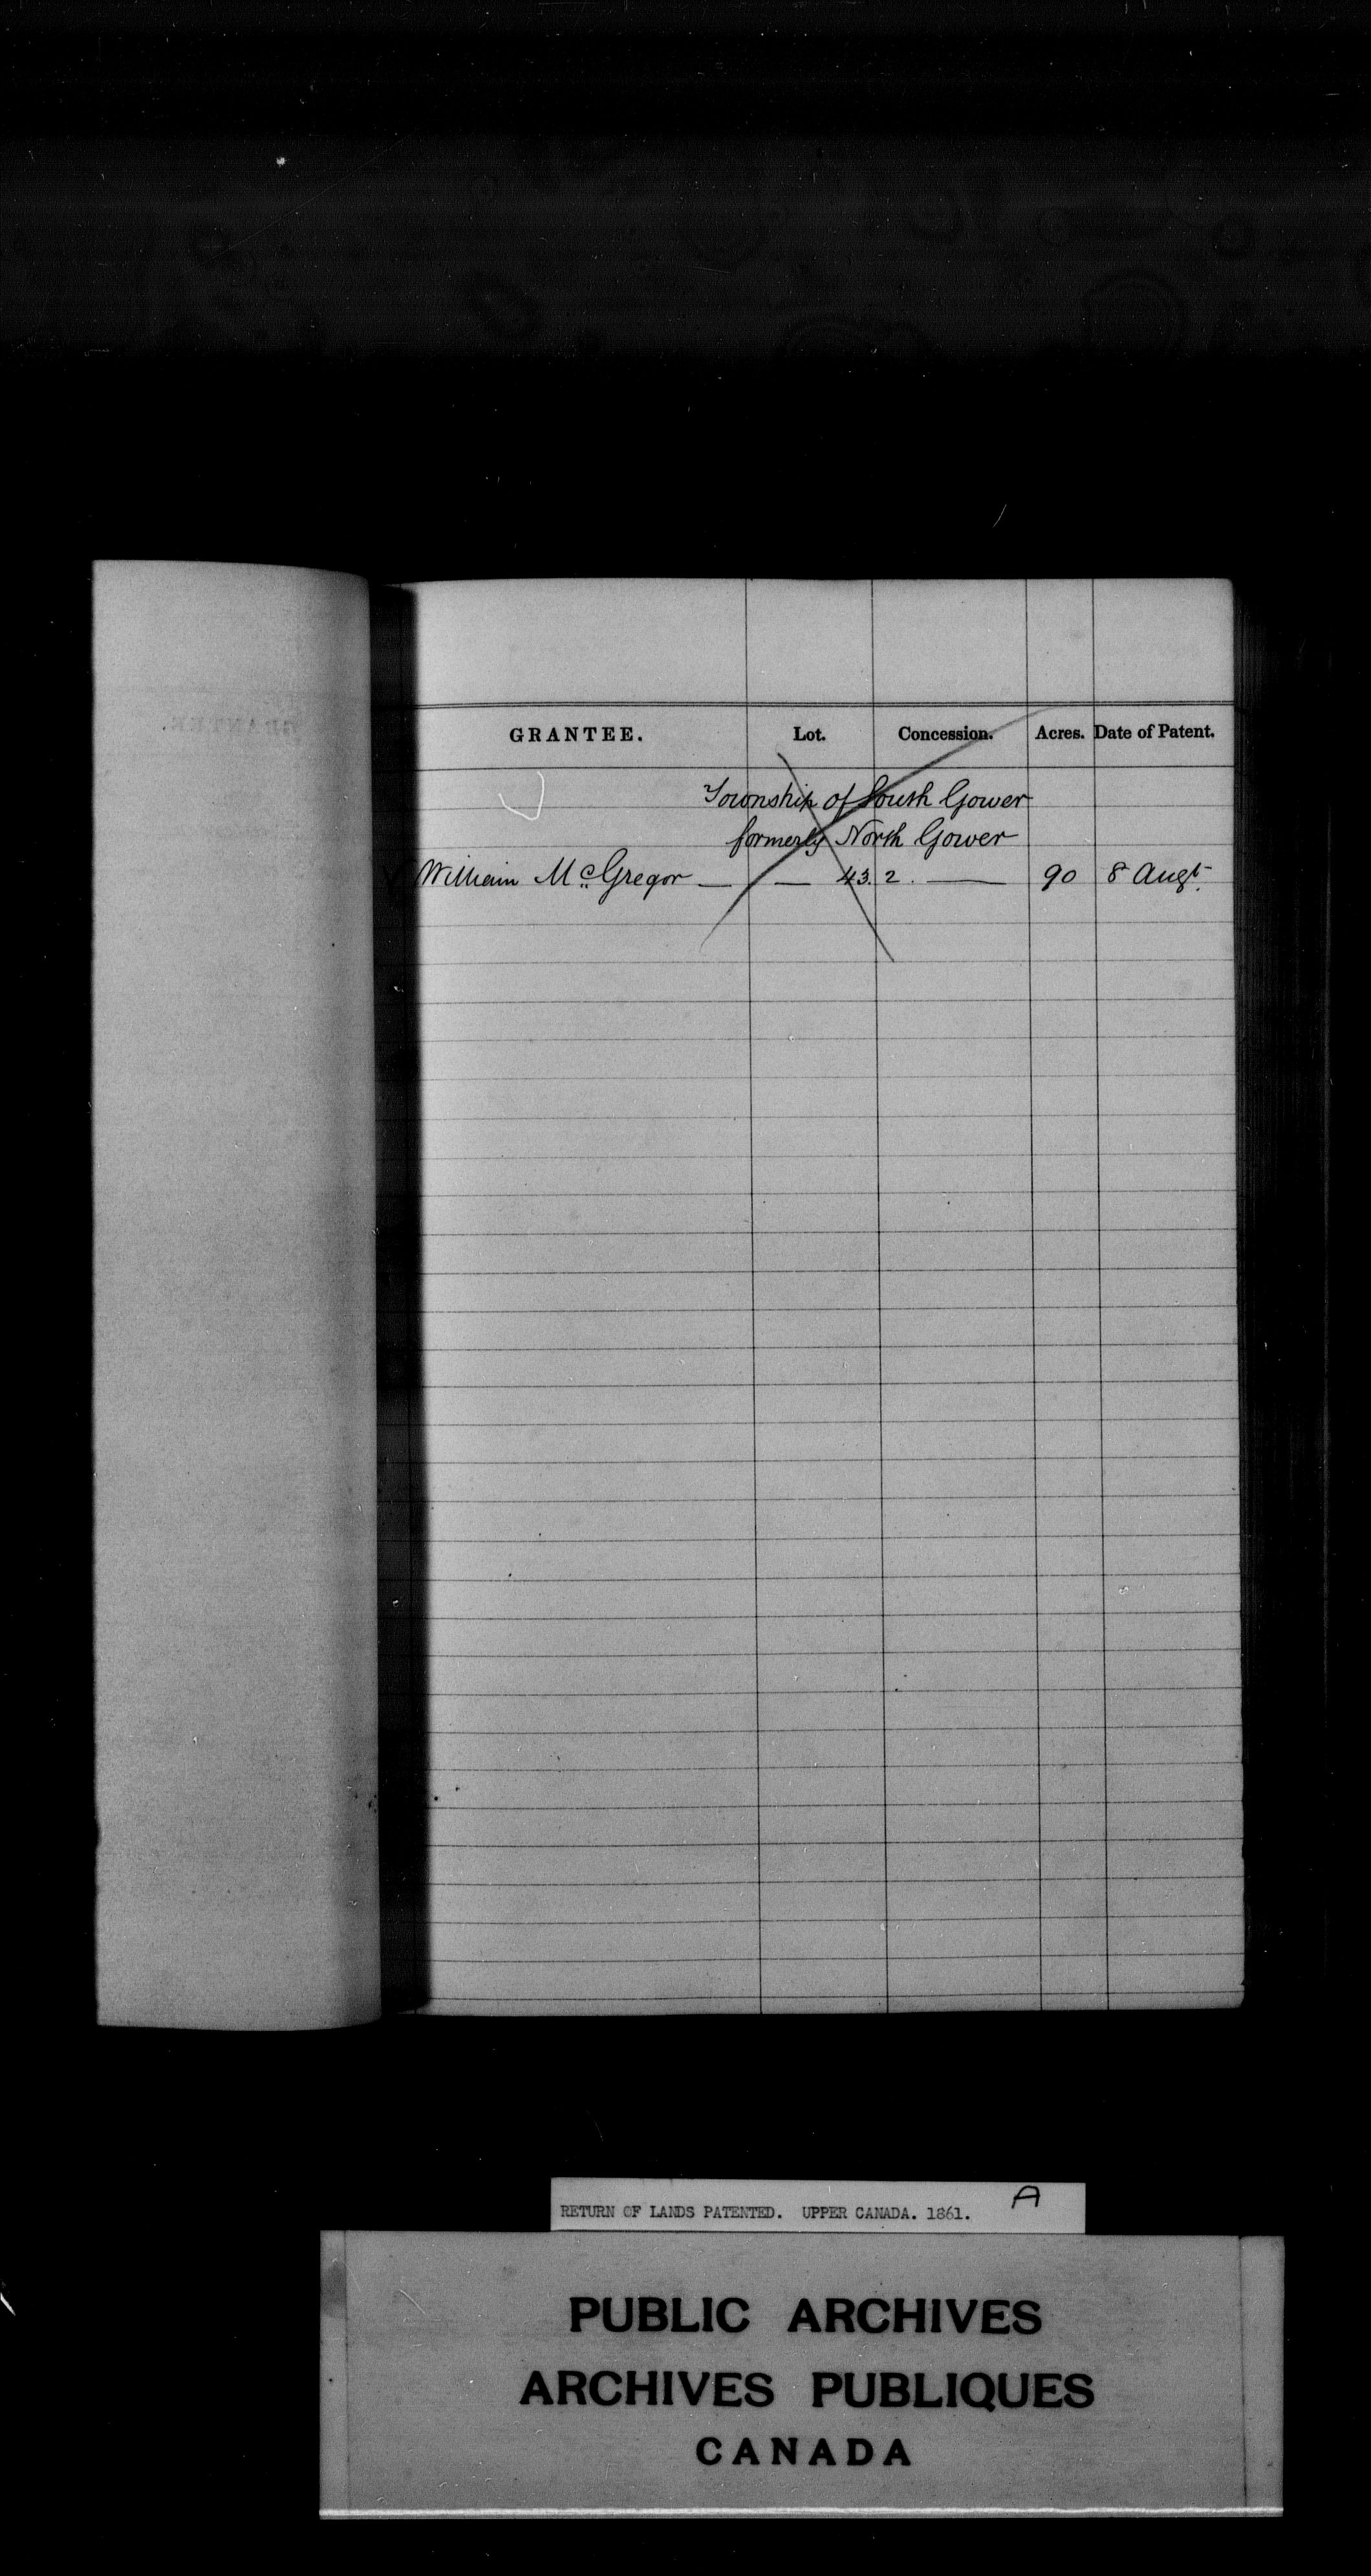 GRANTEE. Lot. Concession. Acres. Date of Patent.
Township of South Gower
formerly North Gower
William McGregor — — 43. 2. — 90 8 Augt
RETURN OF LANDS PATENTED. UPPER CANADA. 1861. A
PUBLIC ARCHIVES
ARCHIVES PUBLIQUES
CANADA